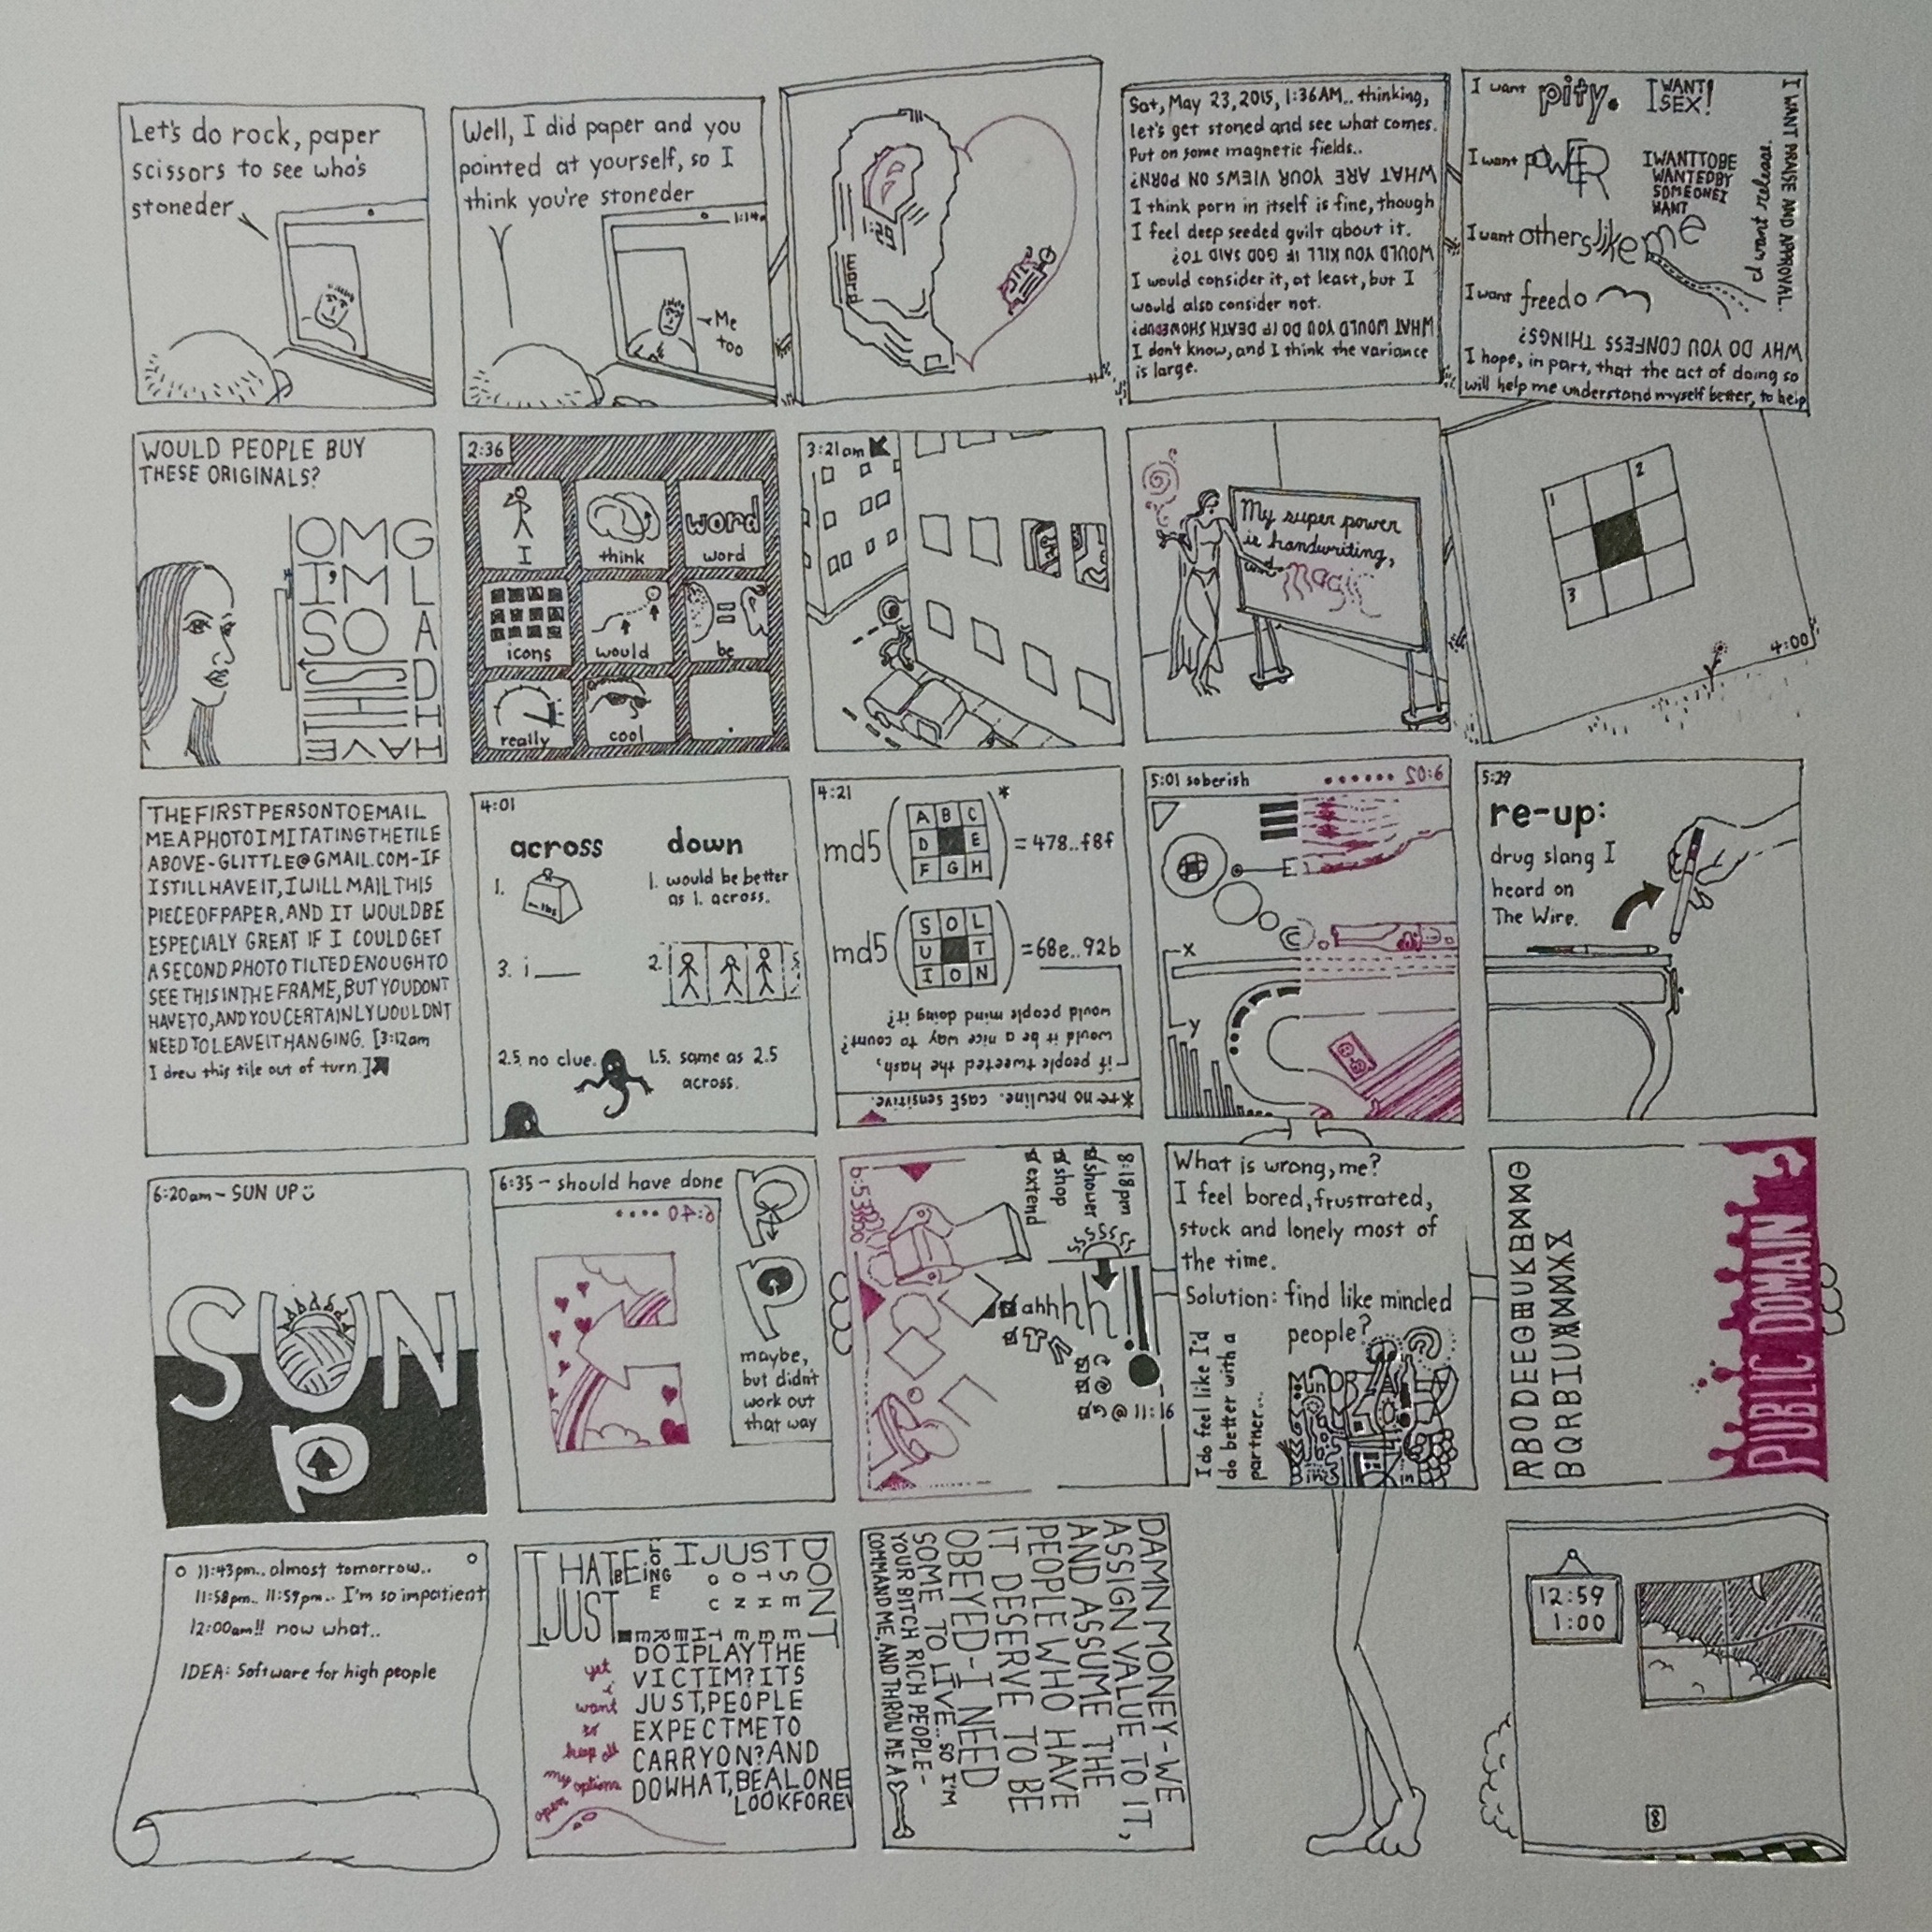 Let's do rock, paper
scissors to see who's
stoneder
Well, I did paper and you
pointed at yourself, so I
think you're stoneder
1:14a
Me
too
word
1:29
Sat, May 23, 2015, 1:36AM.. thinking,
let's get stoned and see what comes.
Put on some magnetic fields..
WHAT ARE YOUR VIEWS ON PORN?
I think porn in itself is fine, though
I feel deep seeded guilt about it.
WOULD YOU KILL IF GOD SAID TO?
I would consider it, at least, but I
would also consider not.
WHAT WOULD YOU DO IF DEATH SHOWEDUP?
I don't know, and I think the variance
is large.
I want pity.
I WANT!
SEX!
I want POWER
IWANTTOBE
WANTEDBY
SOMEONEI
WANT
I want others like me
I want freedo
I want release.
I WANT PRAISE AND APPROVAL.
WHY DO YOU CONFESS THINGS?
I hope, in part, that the act of doing so
will help me understand myself better, to help
WOULD PEOPLE BUY
THESE ORIGINALS?
OMG
I'M
SO
GLAD
I
HAVE
THIS
2:36
I
think
word
word
icons
would
be
really
cool
.
3:21am
My super power
is handwriting,
and magic
1
2
3
4:00
THEFIRSTPERSONTOEMAIL
MEAPHOTOIMITATINGTHETILE
ABOVE-GLITTLE@GMAIL.COM-IF
ISTILLHAVEIT, IWILLMAILTHIS
PIECEOFPAPER, AND IT WOULDBE
ESPECIALY GREAT IF I COULDGET
ASECONDPHOTOTILTEDENOUGHTO
SEETHISINTHEFRAME, BUTYOUDONT
HAVETO, ANDYOUCERTAINLYWOULDNT
NEEDTOLEAVEITHANGING. [3:12am
I drew this tile out of turn.]
4:01
across
down
1.
lbs
1. would be better
as 1. across.
3. i___
2.
2.5. no clue.
1.5. same as 2.5
across.
4:21
md5(
A B C
D E
F G H
)* = 478..f8f
md5(
S O L
U T
I O N
) = 68e..92b
if people tweeted the hash,
would it be a nice way to count?
would people mind doing it?
*re no newline. casE sensitive.
5:01 soberish
6:02
E
C
x
y
5:29
re-up:
drug slang I
heard on
The Wire.
6:20am - SUN UP
SUN
p
6:35 - should have done
6:40
maybe,
but didn't
work out
that way
6:53
8:18pm
shower
shop
extend
ahhhhh!
@ 11:16
What is wrong, me?
I feel bored, frustrated,
stuck and lonely most of
the time.
Solution: find like minded
people?
I do feel like I'd
do better with a
partner...
PUBLIC DOMAIN
11:43pm.. almost tomorrow..
11:58pm.. 11:59pm.. I'm so impatient
12:00am!! now what..
IDEA: Software for high people
I HATE BEING
I JUST
I JUST
DONT
SEE
THE
DOIPLAYTHE
VICTIM?ITS
JUST, PEOPLE
EXPECTMETO
CARRYON?AND
DOWHAT, BEALONE
LOOKFORE
yet
i
want
to
keep all
my options
open
DAMN MONEY-WE
ASSIGN VALUE TO IT,
AND ASSUME THE
PEOPLE WHO HAVE
IT DESERVE TO BE
OBEYED-I NEED
SOME TO LIVE.. SO I'M
YOUR BITCH RICH PEOPLE-
COMMAND ME, AND THROW ME A
12:59
1:00